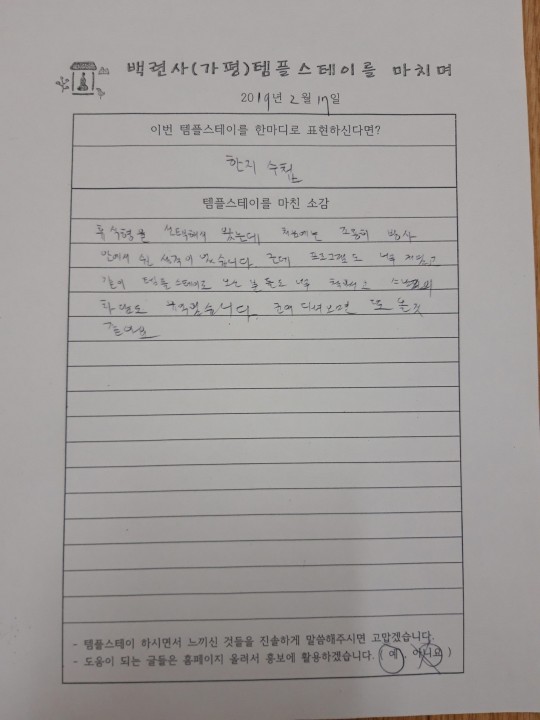 백련사(가평)템플스테이를 마치며
2019년 2월 17일
이번 템플스테이를 한마디로 표현하신다면?
한지 수첩
템플스테이를 마친 소감
휴식형을 선택해서 왔는데 처음에는 조용히 방사
안에서 쉴 생각이었습니다 근데 프로그램도 너무 재밌고
같이 템플스테이로 오신 분들도 너무 스님과의
차담도 좋았습니다. 다시보면 또 올것
같아요
- 템플스테이 하시면서 느끼신 것들을 진솔하게 말씀해주시면 고맙겠습니다.
- 도움이 되는 글들은 홈페이지 올려서 홍보에 활용하겠습니다. ( 예 , 아니요 )